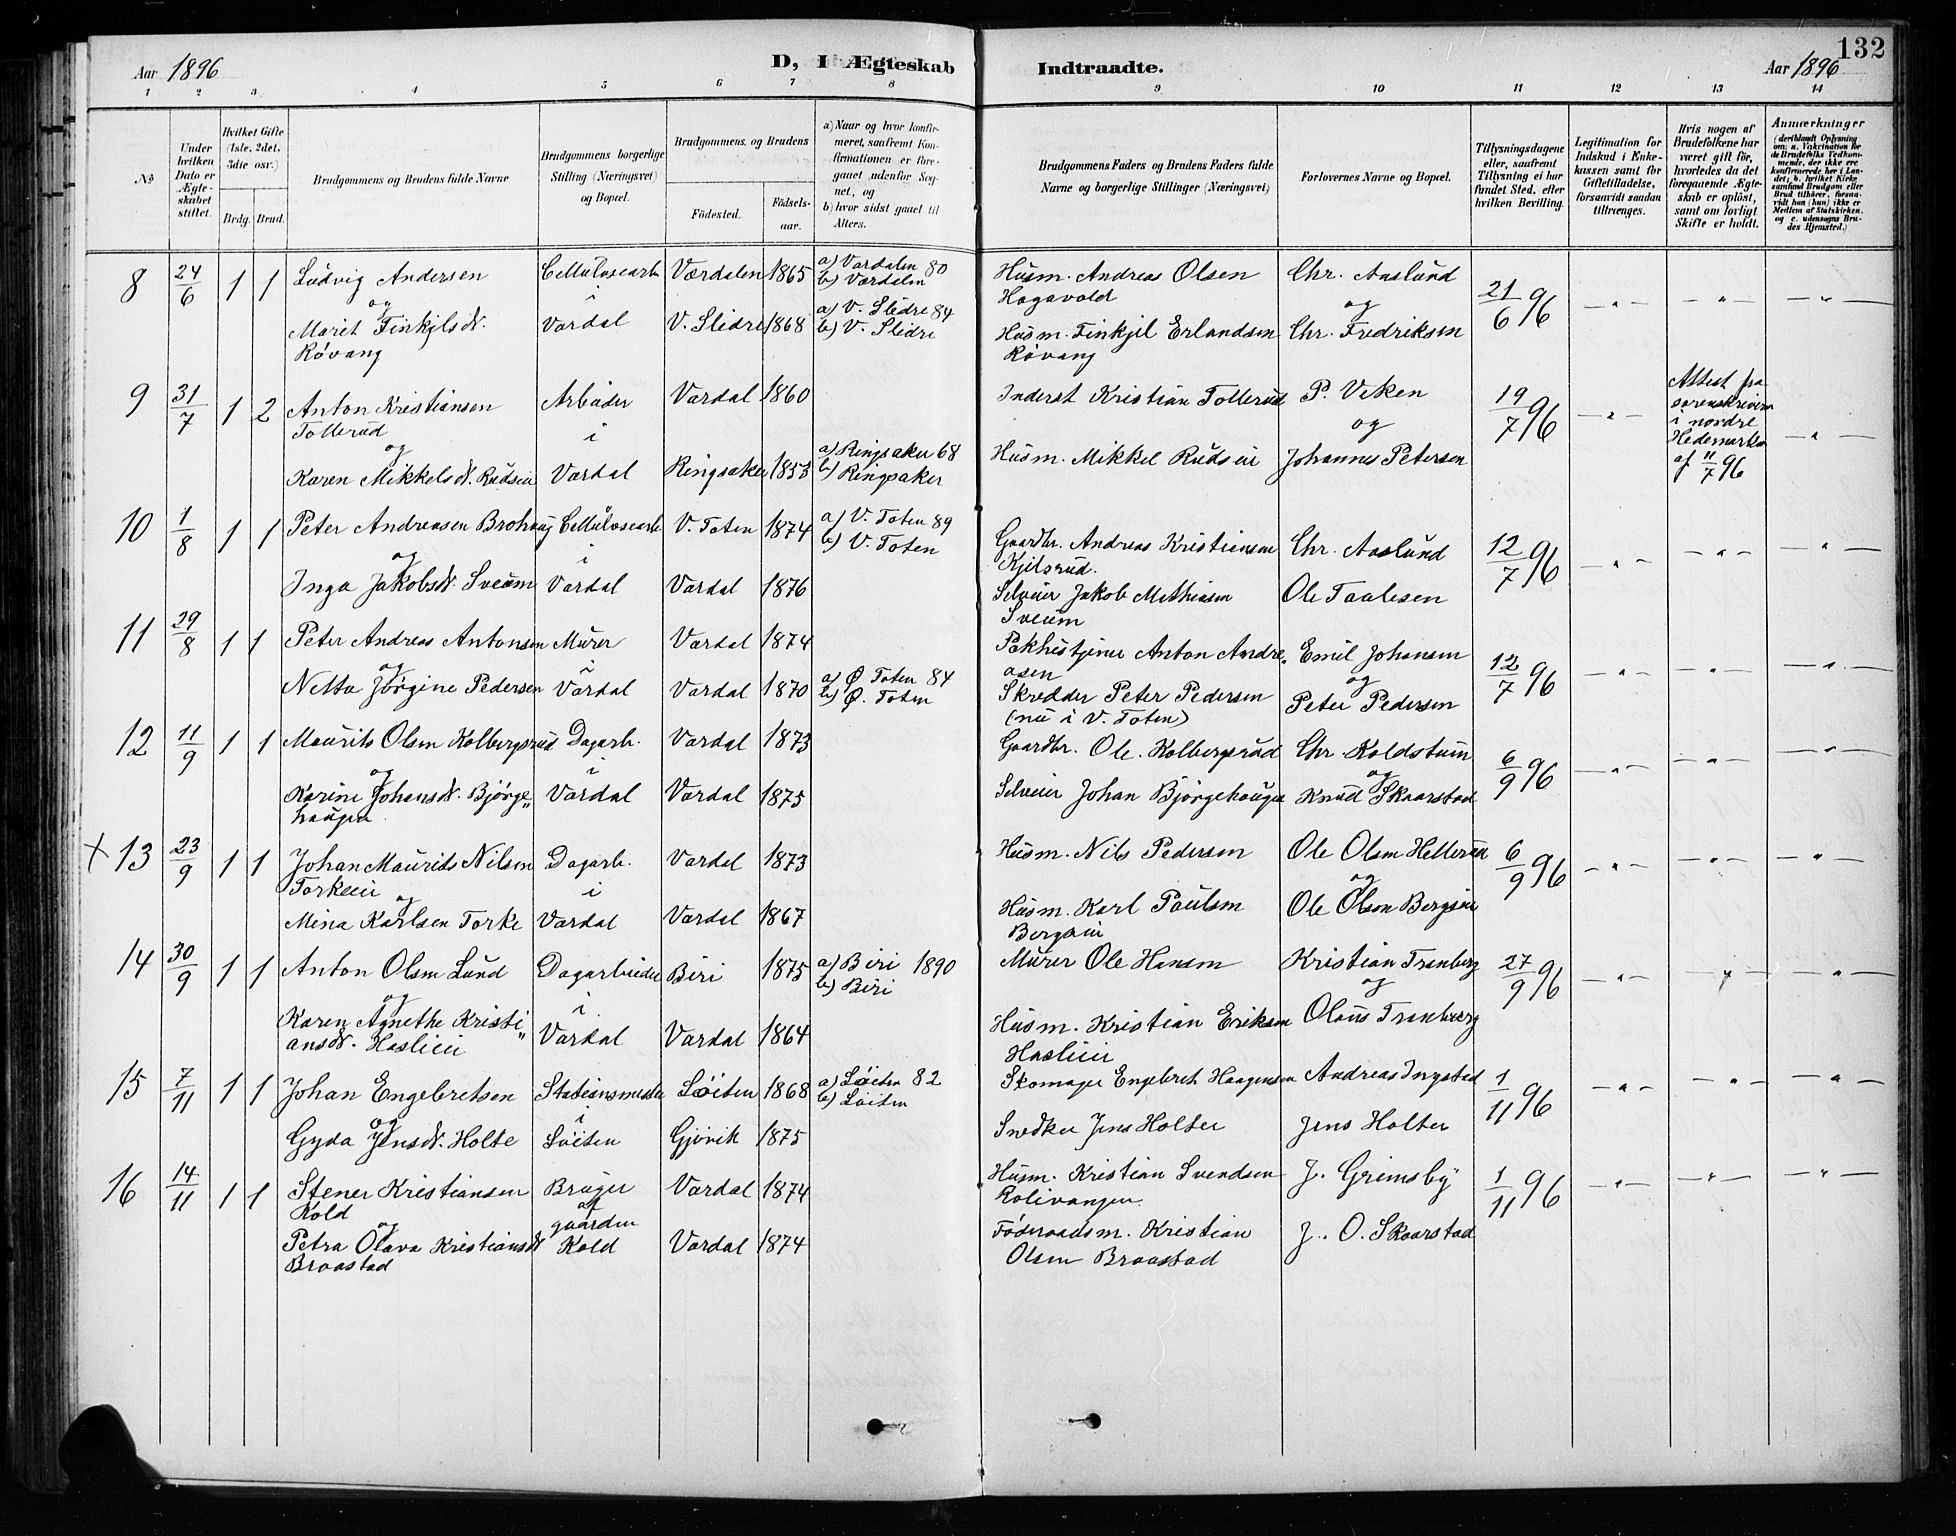 132
Aar 1896 D, I Ægteskab Indtraadte. Aar 1896
1 2 3 4 5 6 7 8 9 10 11 12 13 14
№
Under hvilken Dato er Ægteskabet stiftet.
Hvilket Gifte (1ste, 2det, 3die osv.)
Brdg. Brud.
Brudgommens og Brudens fulde Navne
Brudgommens borgerlige Stilling (Næringsvei) og Bopæl.
Brudgommens og Brudens
Födested.
Födselsaar.
a) Naar og hvor konfirmeret, saafremt Konfirmationen er foregaaet udenfor Sognet, og
b) hvor sidst gaaet til Alters.
Brudgommens Faders og Brudens Faders fulde Navne og borgerlige Stillinger (Næringsvei)
Forlovernes Navne og Bopæl.
Tillysningsdagene eller, saafremt Tillysning ei har fundet Sted, efter hvilken Bevilling.
Legitimation for Indskud i Enkekassen samt for Giftetilladelse, forsaavidt saadan tiltrænges.
Hvis nogen af Brudefolkene har været gift før, hvorledes da det foregaaende Ægteskab er opløst, samt om lovligt Skifte er holdt.
Anmærkninger
(deriblandt Oplysning om: a. Vakcination for de Brudefolks Vedkommende, der ikke ere konfirmerede her i Landet; b. hvilket Kirkesamfund Brudgom eller Brud tilhører, forsaavidt han (hun) ikke er Medlem af Statskirken, og c. udensogns Brudes Hjemsted.)
8 24/6 1 1 Ludvig Andersen Cellulosearb. Værdalen 1865 a) Værdalen 80 Husm. Andreas Olsen Chr. Aaslund 21/6 96
b) Værdalen Hagavold
og i og
Marit Finkjelsdt. Vardal V. Slidre 1868 a) V. Slidre 84 Husm. Finkjel Erlandsen Chr. Fredriksen
Røvang b) V. Slidre Røvang
9 31/7 1 2 Anton Kristiansen Arbeider Vardal 1860 Inderst Kristian Tollerud P. Veken 19/7 96 Attest fra
Tollerud i og sorenskriveren
og i nordre
Karen Mikkelsdt. Rudseie Vardal Ringsaker 1853 a) Ringsaker 68 Husm. Mikkel Rudseie Johannes Petersen Hedemarken
b) Ringsaker af 11/7 96
10 1/8 1 1 Peter Andreasen Brohaug Cellulosearb. V. Toten 1874 a) V. Toten 89 Gaardbr. Andreas Kristiansen Chr. Aaslund 12/7 96
og i b) V. Toten Kjilsrud.
Inga Jakobsdt. Sveum Vardal Vardal 1876 Selveier Jakob Mathiasen Ole Taalesen
Sveum
11 29/8 1 1 Peter Andreas Antonsen Murer Vardal 1874 Pakhustjener Anton Andre„ Emil Johansen 12/7 96
og i asen og
Netta Jørgine Pedersen Vardal Vardal 1870 a) Ø. Toten 84 Skredder Peter Pedersen Peter Pedersen
b) Ø. Toten (nu i V. Toten)
12 11/9 1 1 Maurits Olsen Kolbergsrud Dagarb. Vardal 1873 Gaardbr. Ole Kolbergsrud Chr. Koldstuin 6/9 96
og i og
Karine Johansdt. Bjørge„ Vardal Vardal 1875 Selveier Johan Bjørgehaugen Knud Skaarstad
haugen
x 13 23/9 1 1 Johan Maurits Nilsen Dagarb. Vardal 1873 Husm. Nils Pedersen Ole Olsen Hellerud 6/9 96
Torkeeie og i og
Mina Karlsen Torke Vardal Vardal 1867 Husm. Karl Paulsen Ole Olsen Bergseie
Bergseie
14 30/9 1 1 Anton Olsen Lund Dagarbeider Biri 1875 a) Biri 1890 Murer Ole Hansen Kristian Tranberg 27/9 96
og i b) Biri og
Karen Agnethe Kristi„ Vardal Vardal 1864 Husm. Kristian Eriksen Olaus Tranberg
ansdt. Haslieie Haslieie
15 7/11 1 1 Johan Engebretsen Stationsmester Løiten 1868 a) Løiten 82 Skomager Engebret Haagensen Andreas Ingstad 1/11 96
og i b) Løiten
Gyda Jensdt. Holte Løiten Gjøvik 1875 Snedker Jens Holter Jens Holter
16 14/11 1 1 Stener Kristiansen Bruger Vardal 1874 Husm. Kristian Svendsen J. Grimsby 1/11 96
Kold af Rolivangen
og gaarden
Petra Olava Kristiansdt. Kold Vardal 1874 Føderaadsm. Kristian J. O. Skaarstad
Braastad Olsen Braastad